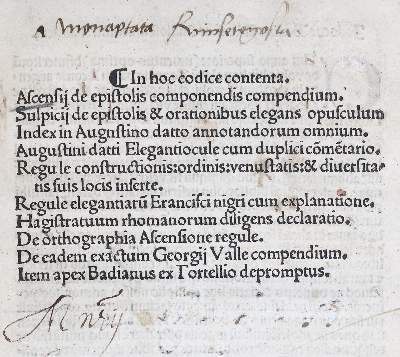 a monaptata
¶ In hoc codice contenta.
Ascensij de epistolis componendis compendium.
Sulpicij de epistolis & orationibus elegans opusculum
Index in Augustino datto annotandorum omnium.
Augustini datti Elegantiocule cum duplici cõmẽtario.
Regule constructionis:ordinis:venustatis:& diversita-
tis suis locis inserte.
Regule elegantiarũ Francisci nigri cum explanatione.
Magistratuum rhomanorum diligens declaratio.
De orthographia Ascensione regule.
De eadem exactum Georgij Valle compendium.
Item apex Badianus ex Tortellio depromptus.